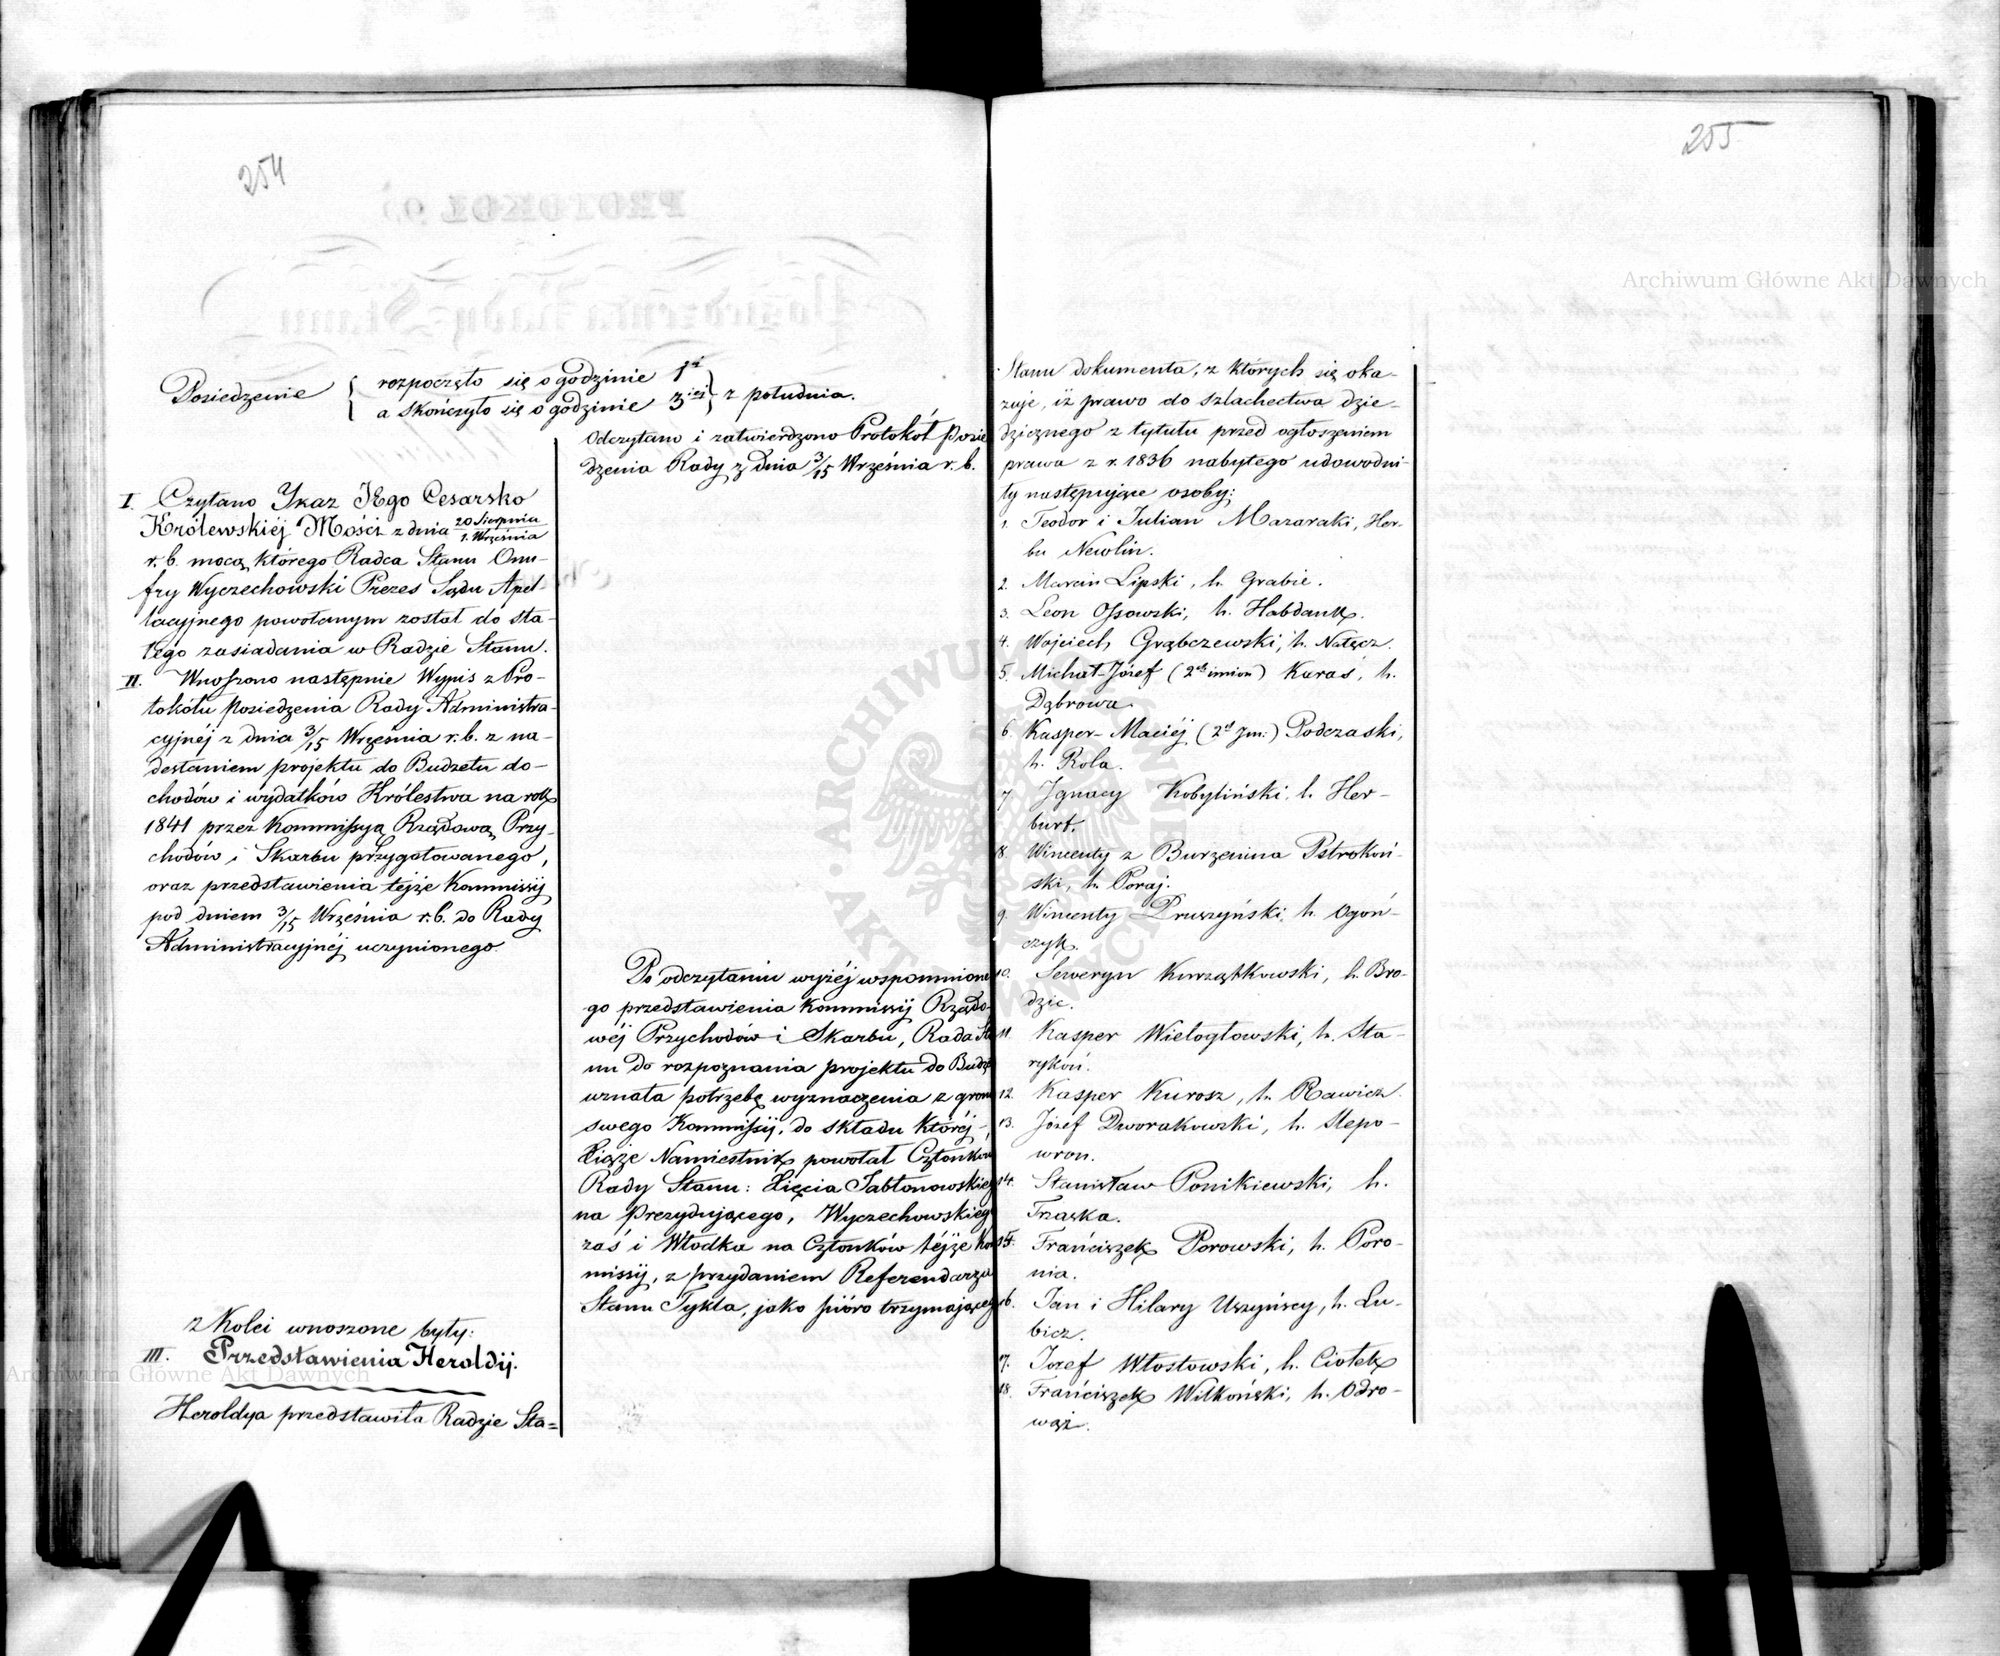 254
Posiedzenie { rozpoczęło się o godzinie 1éj
a skończyło się o godzinie 3ciéj } z południa.
Odczytano i zatwierdzono Protokół Posie
dzenia Rady z dnia 3/15 Września r. b.
I. Czytano Ukaz JEgo Cesarsko
Królewskiéj Mości z dnia 20 Sierpnia/1. Września
r. b. mocą którego Radca Stanu Onu-
fry Wyczechowski Prezes Sądu Apel-
lacyjnego powołanym został do sta-
łego zasiadania w Radzie Stanu.
II. Wnoszono następnie Wypis z Pro-
tokółu Posiedzenia Rady Administra-
cyjnéj z dnia 3/15 Września r. b. z na-
desłaniem projektu do Budżetu do-
chodów i wydatków Królestwa na rok
1841 przez Kommissyą Rządową Przy-
chodów i Skarbu przygotowanego,
oraz przedstawienia téjże Kommissij
pod dniem 3/15 Września r. b. do Rady
Administracyjnéj uczynionego.
Po odczytaniu wyżéj wspomnione
go przedstawienia Kommissij Rządo-
wéj Przychodów i Skarbu, Rada Sta
nu do rozpoznania projektu do Budże
uznała potrzebę wyznaczenia z grona
swego Kommissij, do składu któréj
Xiąże Namiestnik powołał Członków
Rady Stanu: Xięcia Jabłonowskieg
na Prezydującego, Wyczechowskieg
zaś i Włodka na Członków téjże Kom
missij, z przydaniem Referendarza
Stanu Tykla, jako pióro trzymająceg
z Kolei wnoszone były:
III. Przedstawienia Heroldij.
Heroldya przedstawiła Radzie Sta=
255
Stanu dokumenta, z których się oka-
zuje, iż prawo do szlachectwa dzie-
dzicznego z tytułu przed ogłoszeniem
prawa z r. 1836 nabytego udowodni-
ły następujące osoby:
1. Teodor i Julian Mazaraki, Her-
bu Newlin.
2. Marcin Lipski, h. Grabie.
3. Leon Ossowski, h. Habdank.
4. Wojciech Grąbczewski, h. Nałęcz.
5. Michał-Józef (2ch imion) Karaś, h.
Dąbrowa.
6. Kasper-Maciéj (2ch Jm:) Podczaski,
h. Rola.
7. Ignacy Kobyliński, h. Her-
burt.
8. Wincenty z Burzenina Pstrokoń-
ski, h. Poraj.
9. Wincenty Pruszyński, h. Ogoń-
czyk.
10. Seweryn Kurzątkowski, h. Bro-
dzic.
11. Kasper Wielogłowski, h. Sta-
rykoń.
12. Kasper Kurosz, h. Rawicz.
13. Józef Dworakowski, h. Slepo-
wron.
14. Stanisław Ponikiewski, h.
Trzaska.
15. Franciszek Porowski, h. Poro-
nia.
16. Jan i Hilary Uszyńscy, h. Lu-
bicz.
17. Jozef Włostowski, h. Ciołek
18. Franciszek Wilkoński, h. Odro-
wąż.
Archiwum Główne Akt Dawnych
Archiwum Główne Akt Dawnych